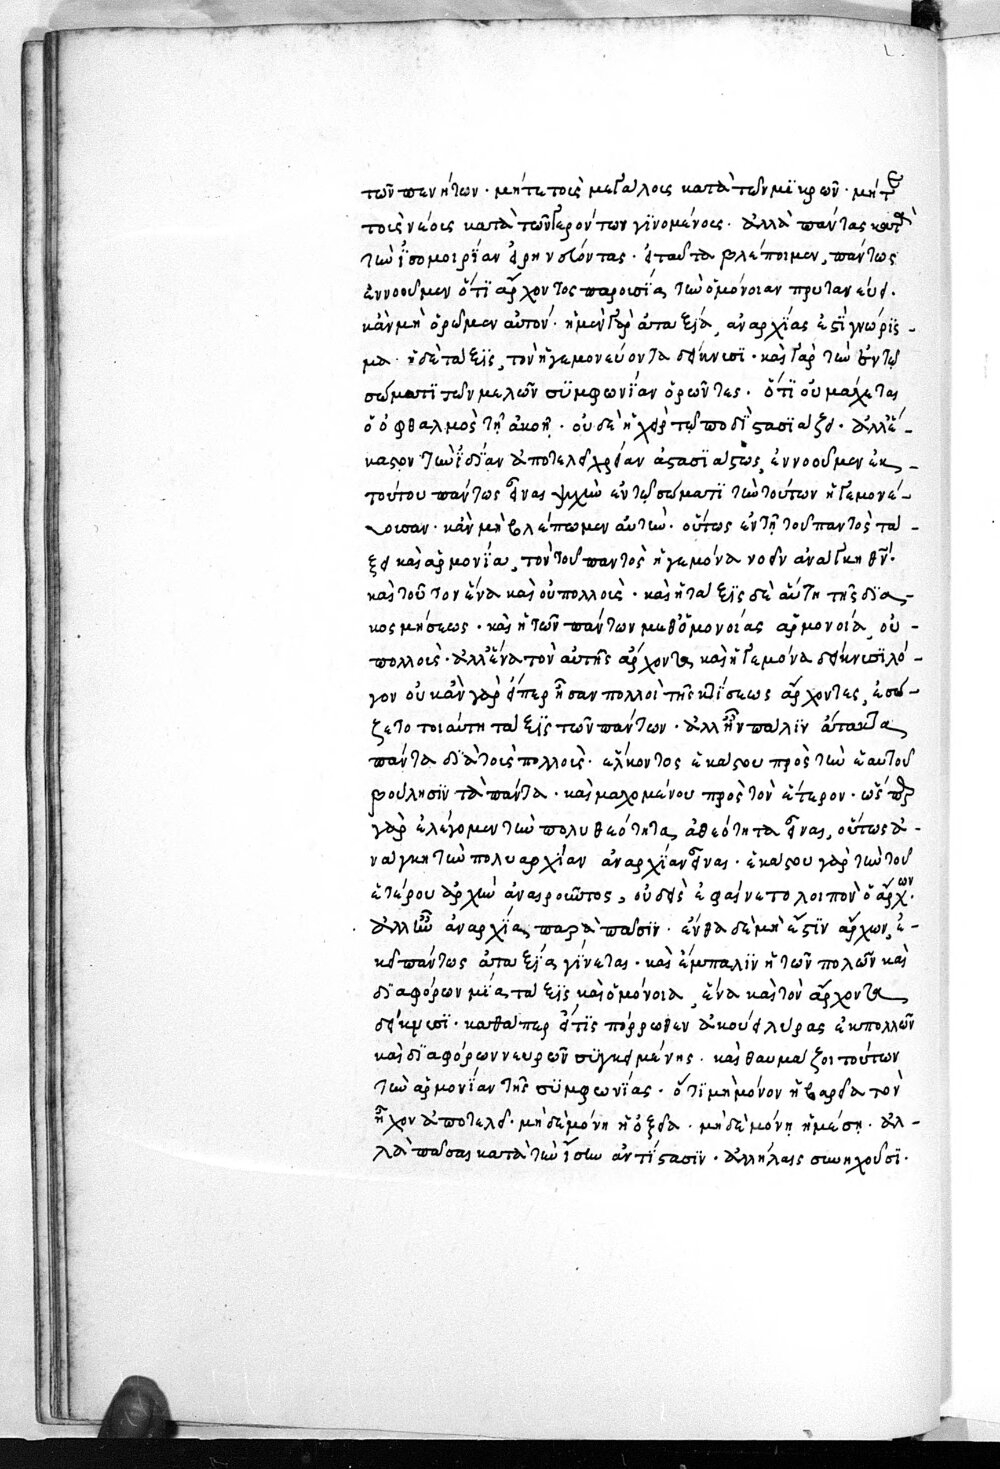 τῶν πενήτων· μήτε τοῖς μεγάλοις κατὰ τῶν μικρῶν· μήτε
τοῖς νέοις κατὰ τῶν γερόντων γινομένοις· ἀλλὰ πάντας κατὰ
τὴν ἰσομοιρίαν εἰρηνεύοντας· εἰ ταῦτα βλέποιμεν, πάντως
ἐννοοῦμεν ὅτι ἄρχοντος παρουσία, τὴν ὁμόνοιαν πρυτανεύει·
κἂν μὴ ὁρῶμεν αὐτόν· ἡ μὲν γὰρ ἀταξία, ἀναρχίας ἐστὶ γνώρισ-
μα· ἡ δὲ τάξις, τὸν ἡγεμονεύοντα δείκνυσι· καὶ γὰρ τὴν ἐν τῷ
σώματι τῶν μελῶν συμφωνίαν ὁρῶντες· ὅτι οὐ μάχεται
ὁ ὀφθαλμὸς τῇ ἀκοῇ· οὐδὲ ἡ χεὶρ τῷ ποδὶ στασιάζει· ἀλλ' ἕ-
καστον τὴν ἰδίαν ἀποτελεῖ χρείαν ἀστασιάστως, ἐννοοῦμεν ἐκ
τούτου πάντως εἶναι ψυχὴν ἐν τῷ σώματι τὴν τούτων ἡγεμονεύ-
ουσαν· κἂν μὴ βλέπωμεν αὐτήν· οὕτως ἐν τῇ τοῦ παντὸς τά-
ξει καὶ ἁρμονίᾳ, τὸν τοῦ παντὸς ἡγεμόνα νοεῖν ἀνάγκη θεόν·
καὶ τοῦτον ἕνα καὶ οὐ πολλούς· καὶ ἡ τάξις δὲ αὕτη τῆς δια-
κοσμήσεως· καὶ ἡ τῶν πάντων μεθ' ὁμονοίας ἁρμονία, οὐ
πολλούς· ἀλλ' ἕνα τὸν αὐτῆς ἄρχοντα καὶ ἡγεμόνα δείκνυσι λό-
γον οὐκ ἂν γὰρ εἴπερ ἦσαν πολλοὶ τῆς κτίσεως ἄρχοντες, ἐσώ-
ζετο τοιαύτη τάξις τῶν πάντων· ἀλλ' ἦν πάλιν ἄτακτα
πάντα διὰ τοὺς πολλούς· ἕλκοντος ἑκάστου πρὸς τὴν ἑαυτοῦ
βούλησιν τὰ πάντα· καὶ μαχομένου πρὸς τὸν ἕτερον· ὥσπερ
γὰρ ἐλέγομεν τὴν πολυθεότητα, ἀθεότητα εἶναι, οὕτως ἀ-
νάγκη τὴν πολυαρχίαν ἀναρχίαν εἶναι· ἑκάστου γὰρ τὴν τοῦ
ἑτέρου ἀρχὴν ἀναιροῦντος, οὐδεὶς ἐφαίνετο λοιπὸν ὁ ἄρχων·
ἀλλ' ἦν ἀναρχία, παρὰ πᾶσιν· ἔνθα δὲ μὴ ἔστιν ἄρχων, ἐ-
κεῖ πάντως ἀταξία, γίνεται· καὶ ἔμπαλιν ἡ τῶν πολλῶν καὶ
διαφόρων μία τάξις καὶ ὁμόνοια, ἕνα καὶ τὸν ἄρχοντα
δείκνυσι· καθάπερ εἴ τις πόρρωθεν ἀκούει λύρας ἐκ πολλῶν
καὶ διαφόρων νευρῶν συγκειμένης· καὶ θαυμάζοι τούτων
τὴν ἁρμονίαν τῆς συμφωνίας· ὅτι μὴ μόνον ἡ βαρεῖα τὸν
ἦχον ἀποτελεῖ· μηδὲ μόνη ἡ ὀξεῖα· μηδὲ μόνη ἡ μέση· ἀλ-
λὰ πᾶσαι κατὰ τὴν ἴσην ἀντίστασιν· ἀλλήλαις συνηχοῦσι·